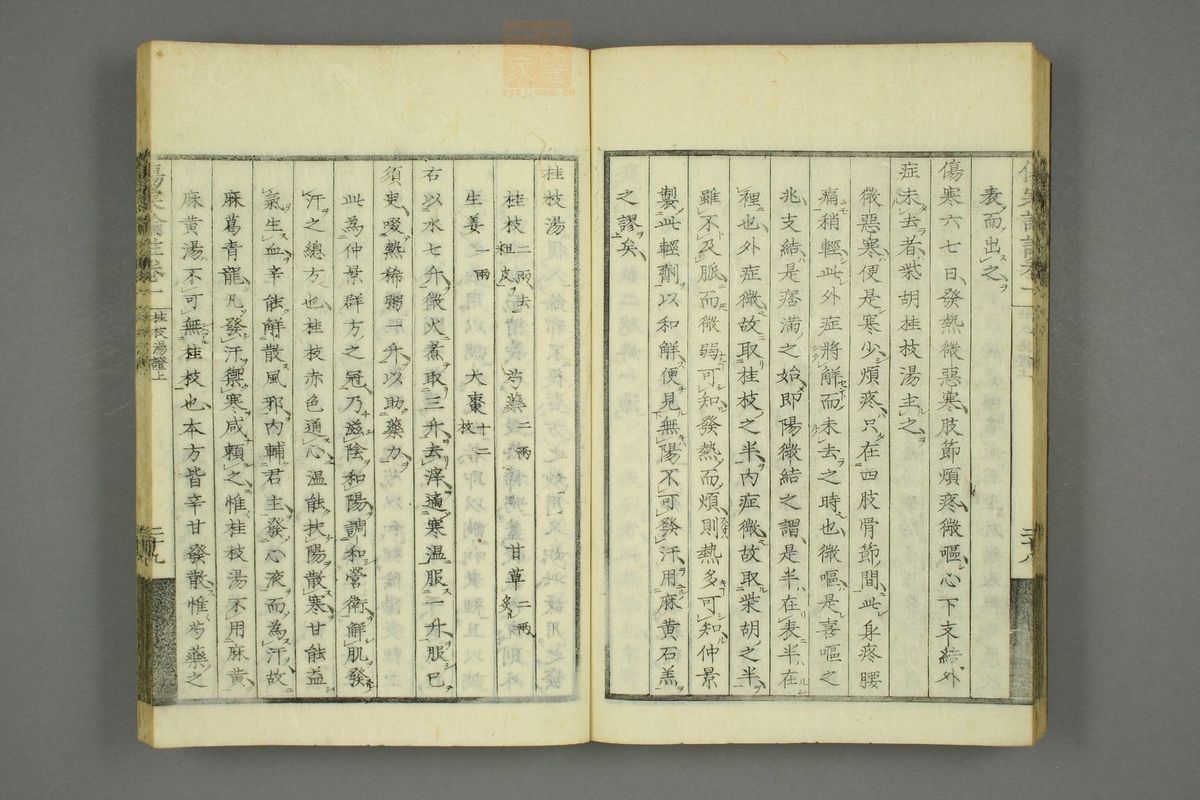 表而出之
傷寒六七日發熱微惡寒肢節煩疼微嘔心下支結外
症未去者柴胡桂枝湯主之
微惡寒便是寒少煩疼只在四肢骨節間此身疼腰
痛稍輕此外症將解而未去之時也微嘔是喜嘔之
兆支結是痞滿之始即陽微結之謂是半在表半在
裡也外症微故取桂枝之半內症微故取柴胡之半
雖不及脈而微弱可知發熱而煩則熱多可知仲景
製此輕劑以和解便見無陽不可發汗用麻黄石羔
之謬矣
桂枝湯
桂枝二兩去粗皮 芍藥二兩 甘草二兩炙
生姜二兩 大棗十二枚
右以水七升微火煮取三升去滓適寒温服一升服已
須臾啜熱稀粥一升以助藥力
此為仲景群方之冠乃滋陰和陽調和營衛解肌發
汗之總方也桂枝赤色通心温能扶陽散寒甘能益
氣生血辛能解散風邪內輔君主發心液而為汗故
麻葛青龍凡發汗禦寒咸頼之惟桂枝湯不用麻黄
麻黄湯不可無桂枝也本方皆辛甘發散惟芍藥之
傷寒論註卷一 桂枝湯證上 二十九
二十八